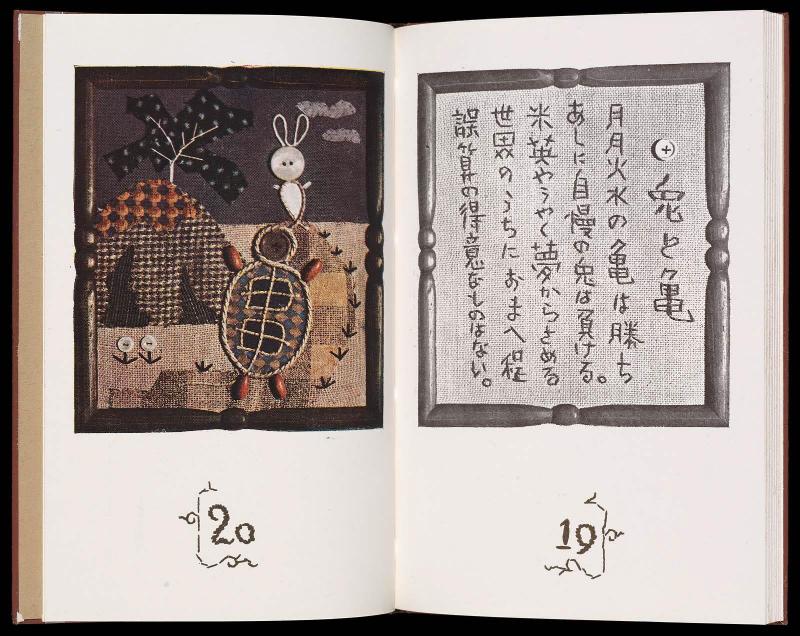 兎と亀
月月火水の亀は勝ち
あしに自慢の兎は負ける。
米英やうやく夢からさめる
世界のうちにおまへ程
誤算の得意なものはない。
19
20